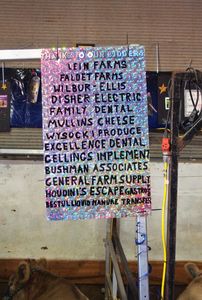 THANKS TO OUR BIDDERS
MULLEIN FARMS
FALDET FARMS
WILBUR-ELLIS
DISHER ELECTRIC
FAMILY DENTAL
MULLINS CHEESE
WYSOCKI PRODUCE
EXCELLENCE DENTAL
GELLINGS IMPLEMENT
BUSHMAN ASSOCIATES
GENERAL FARM SUPPLY
HOUDINI'S ESCAPE GASTRO
BESTUL LIQUID MANURE TRANSFER